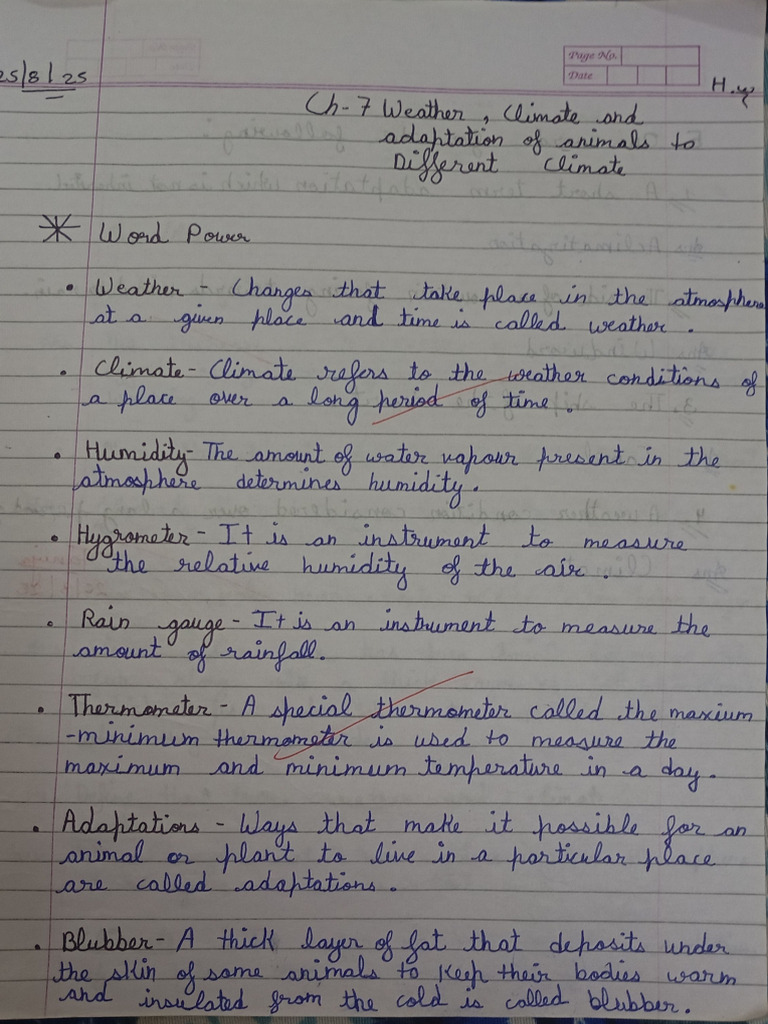 Page No.
Date
25/8/25
H.W
Ch-7 Weather, Climate and
adaptation of animals to
Different Climate
Word Power
• Weather - Changes that take place in the atmosphere
at a given place and time is called weather.
• Climate - Climate refers to the weather conditions of
a place over a long period of time.
• Humidity - The amount of water vapour present in the
atmosphere determines humidity.
• Hygrometer - It is an instrument to measure
the relative humidity of the air.
• Rain gauge - It is an instrument to measure the
amount of rainfall.
• Thermometer - A special thermometer called the maxium
-minimum thermometer is used to measure the
maximum and minimum temperature in a day.
• Adaptations - Ways that make it possible for an
animal or plant to live in a particular place
are called adaptations.
• Blubber - A thick layer of fat that deposits under
the skin of some animals to keep their bodies warm
and insulated from the cold is called blubber.